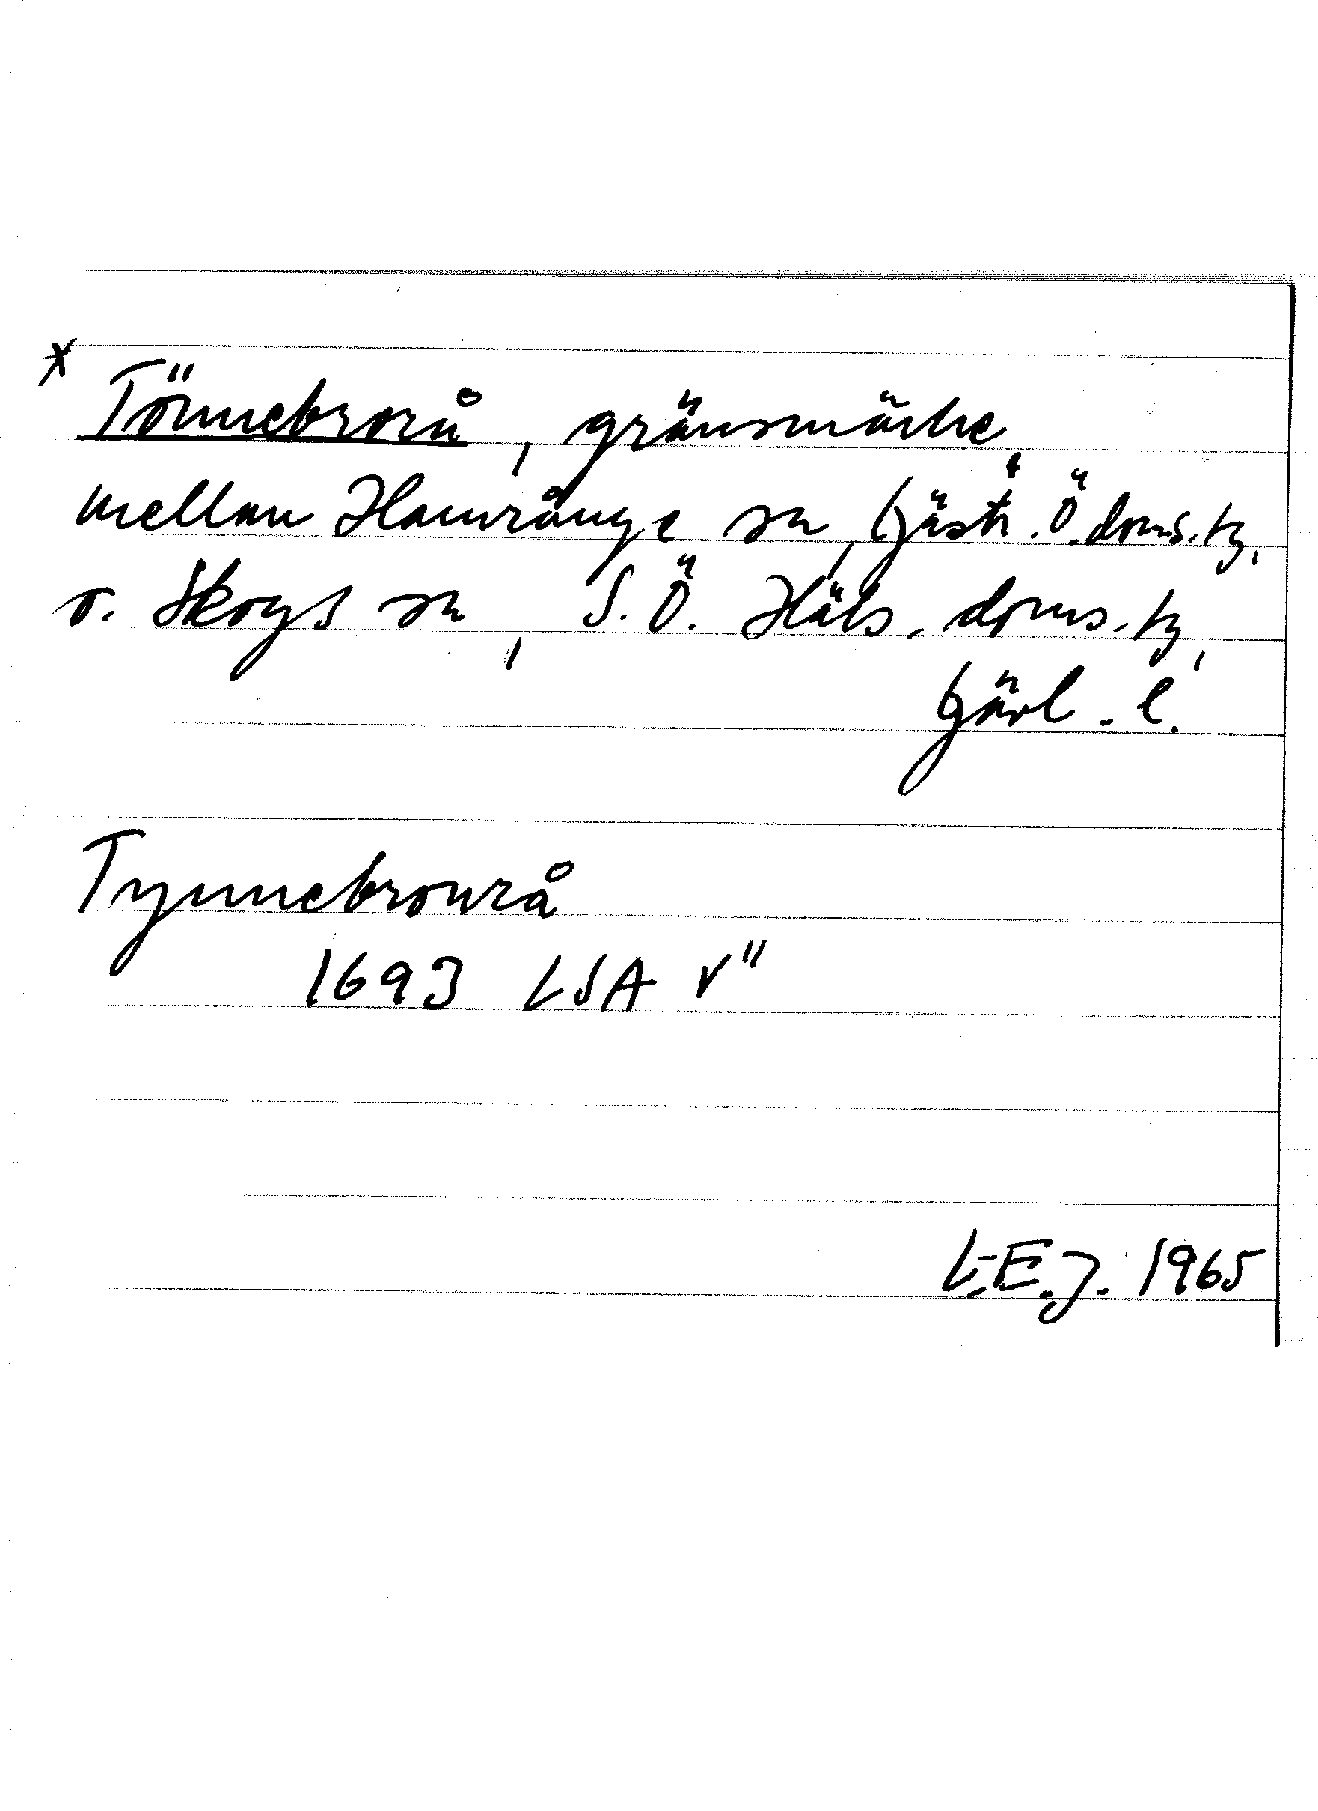 x Tönnebrorå, gränsmärke
mellan Hamrånge sn, Gästr. Ö. doms. tg,
o. Skogs sn, S. Ö. Häls. doms. tg,
Gävl. l.
Tynnebronrå
1693 LSA V"
L-E. J. 1965